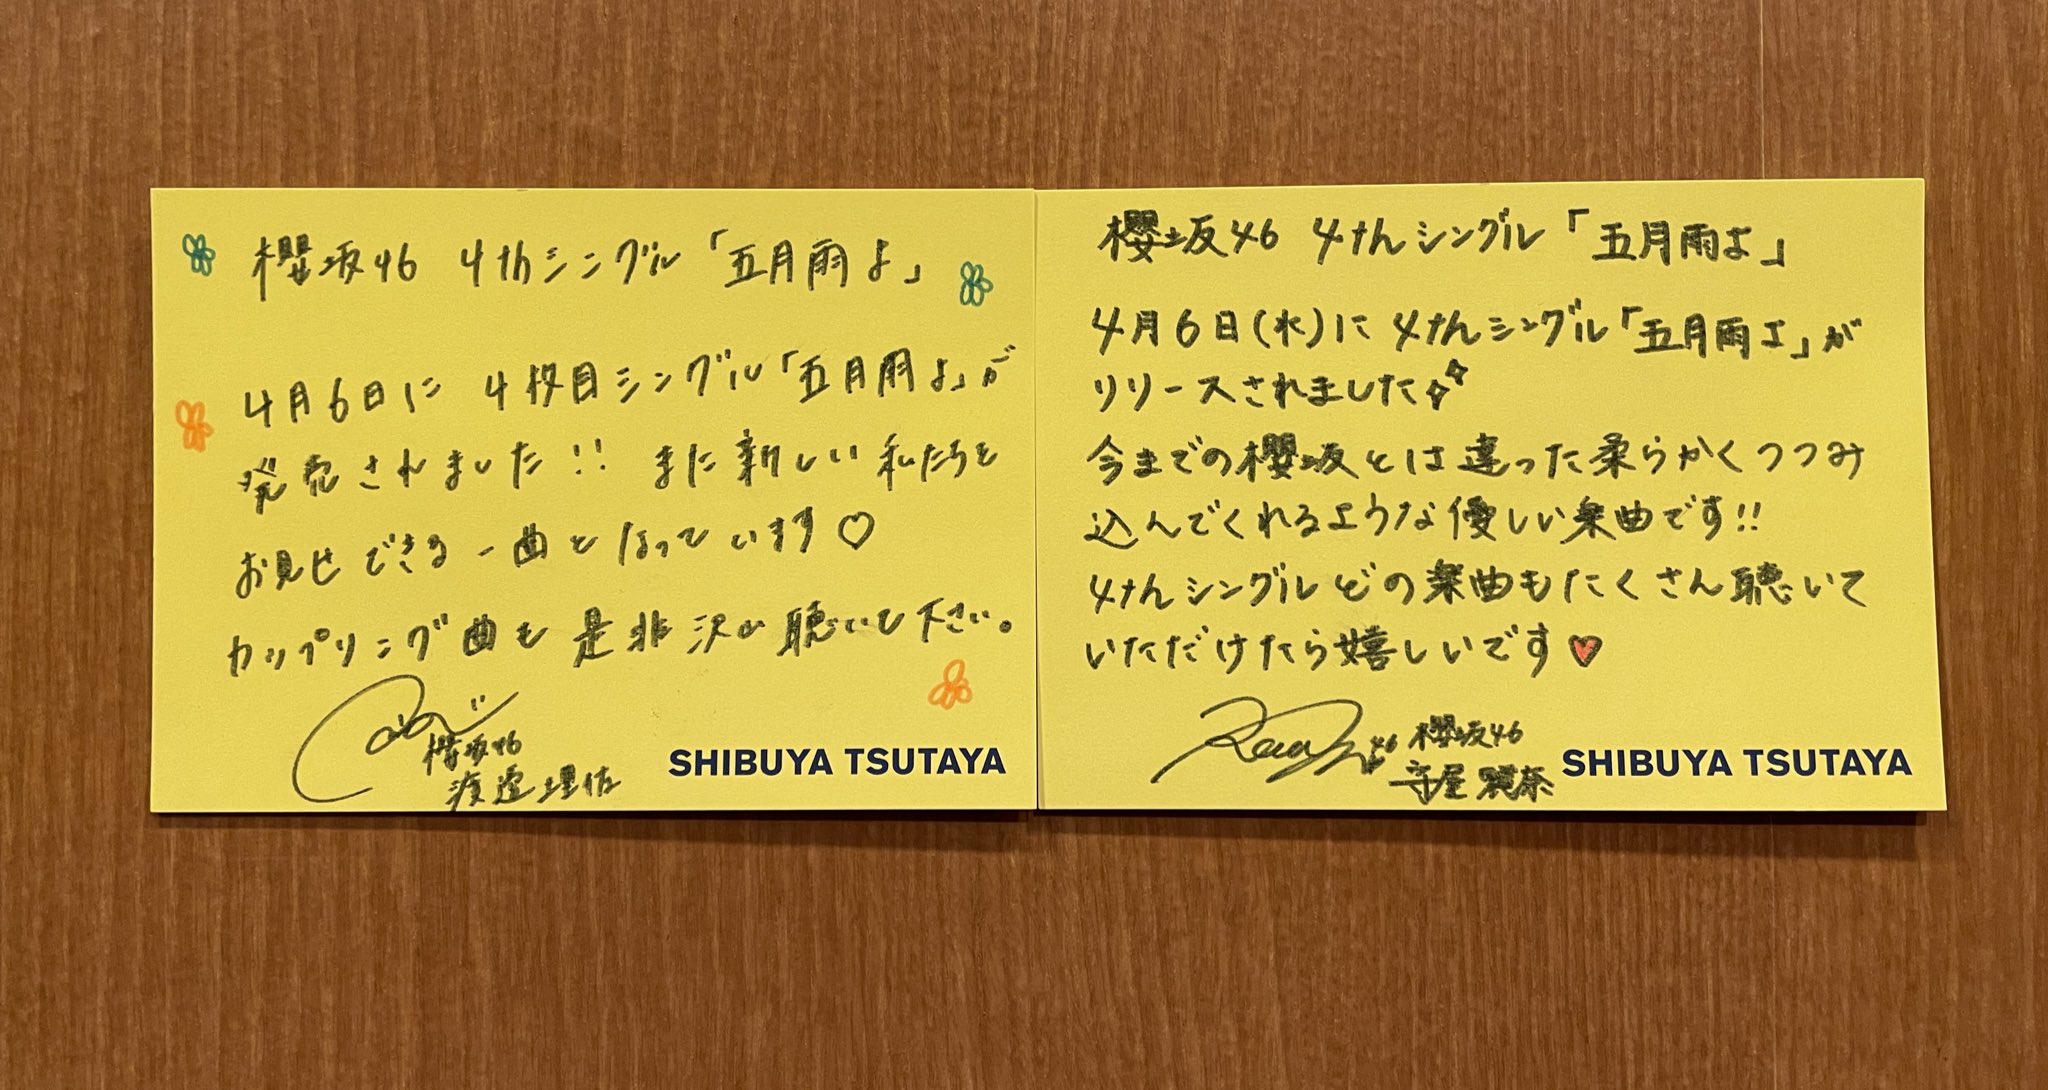 櫻坂46 4thシングル「五月雨よ」
4月6日に 4枚目シングル「五月雨よ」が
発売されました!! また新しい私たちを
お見せできる一曲となっています♡
カップリング曲も是非沢山聴いて下さい。
櫻坂46
渡邉理佐
SHIBUYA TSUTAYA
櫻坂46 4thシングル「五月雨よ」
4月6日(水)に 4thシングル「五月雨よ」が
リリースされました
今までの櫻坂とは違った柔らかくつつみ
込んでくれるような優しい楽曲です!!
4thシングルどの楽曲もたくさん聴いて
いただけたら嬉しいです♥
46 櫻坂46
守屋麗奈
SHIBUYA TSUTAYA